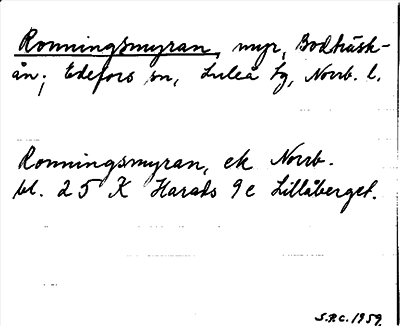 Ronningsmyran, myr, Bodträsk-
ån; Edefors sn, Luleå tg, Norrb. l.
Ronningsmyran, ek Norrb.
bl. 25 K Harads 9e Lillåberget.
S.P.C. 1959.